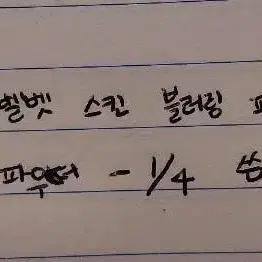 벨벳 스킨 블러링 파
파우더 - 1/4 씀